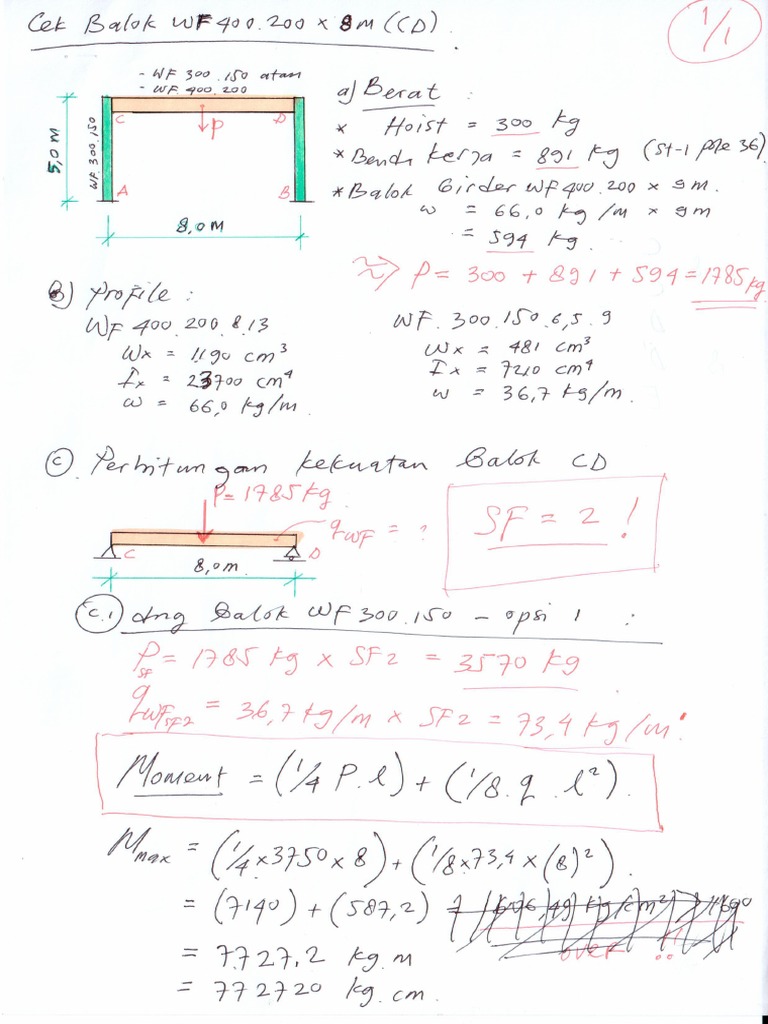 Cek Balok WF 400.200 x 8m (CD).
1/1
- WF 300.150 atau
- WF 400.200
C
D
P
5,0 m
WF 300.150
A
B
8,0 m
a) Berat :
* Hoist = 300 kg
* Benda kerja = 891 kg (St-1 pole 36)
* Balok Girder WF 400.200 x 9m.
w = 66,0 kg/m x 9m
= 594 kg.
≈> P = 300 + 891 + 594 = 1785 kg
B) Profile :
WF 400.200.8.13
Wx = 1190 cm³
Ix = 23700 cm⁴
w = 66,0 kg/m.
WF. 300.150.6,5.9
Wx = 481 cm³
Ix = 7210 cm⁴
w = 36,7 kg/m.
C. Perhitungan kekuatan Balok CD
P = 1785 kg.
qWF = ?
C
D
8,0 m.
SF = 2 !
C.1 dng Balok WF 300.150 - opsi 1 :
Psf = 1785 kg x SF2 = 3570 kg
qWFSF2 = 36,7 kg/m x SF2 = 73,4 kg/m.
Moment = (1/4 P.l) + (1/8.q.l²).
Mmax = (1/4 x 3750 x 8) + (1/8 x 73,4 x (8)²).
= (7140) + (587,2)
over !!
= 7.727,2 kg.m
= 772720 kg.cm.